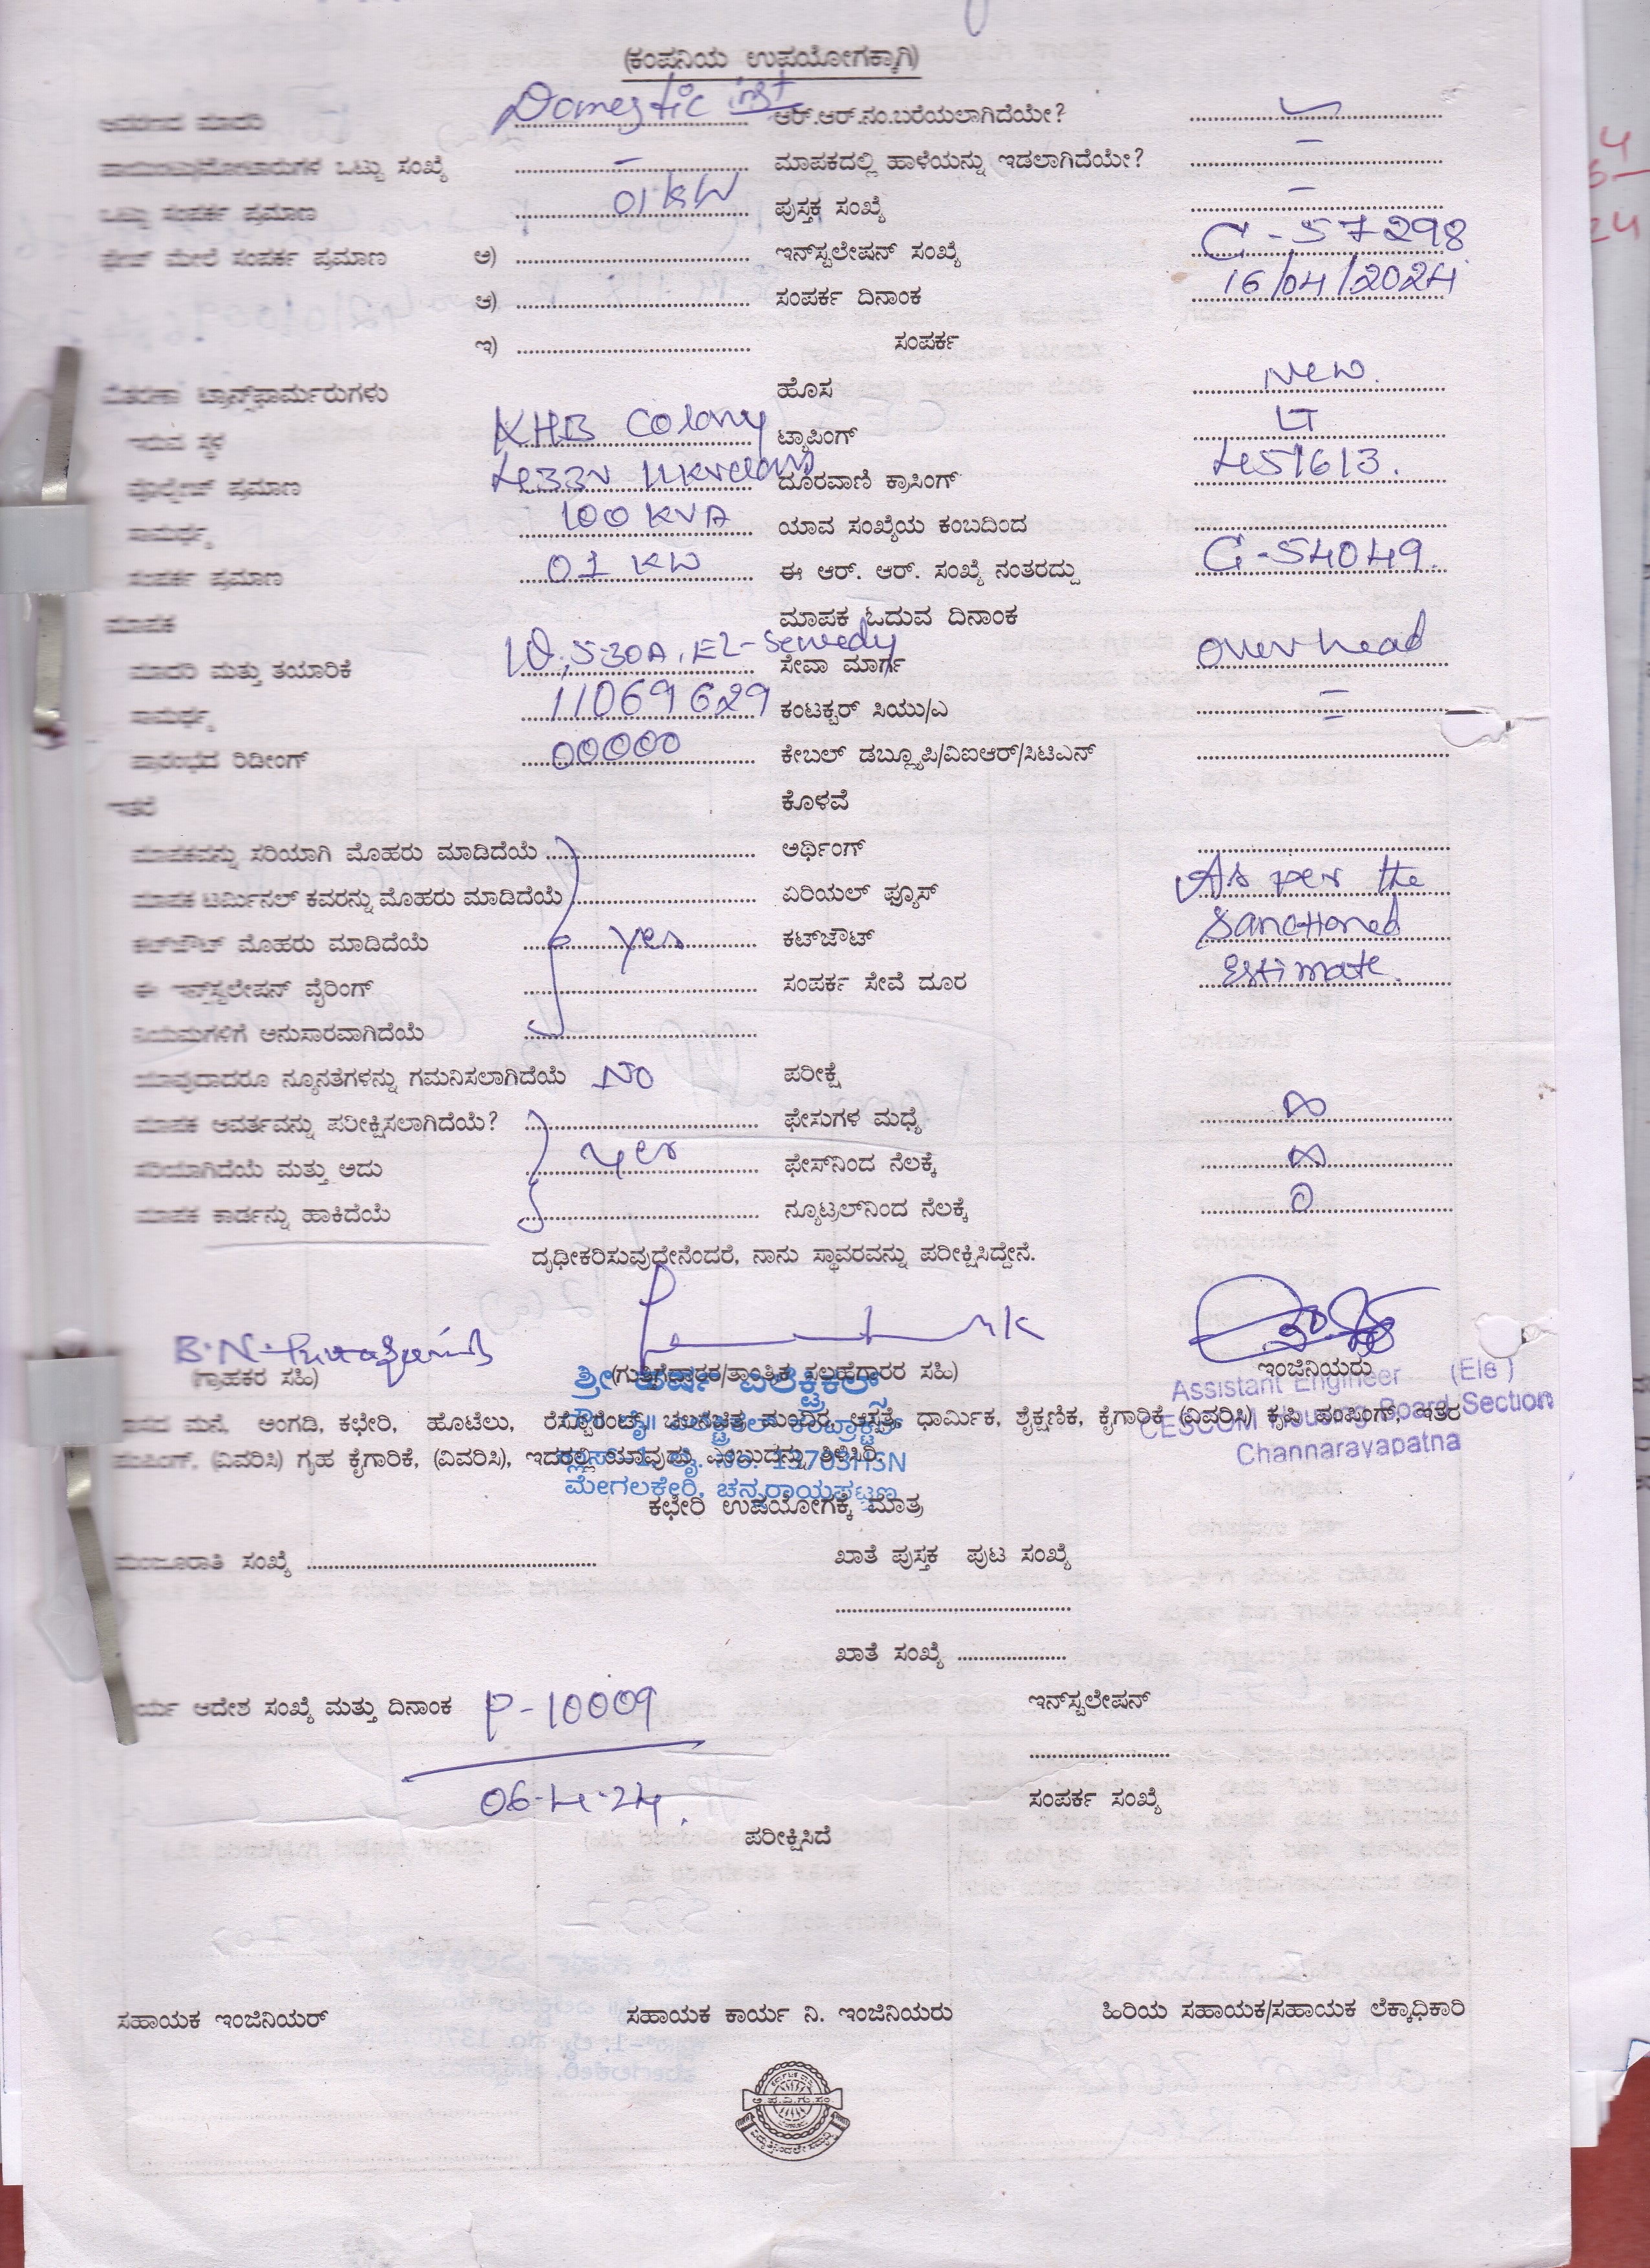 (ಕಂಪನಿಯ ಉಪಯೋಗಕ್ಕಾಗಿ)
ಆವರಣದ ಮಾದರಿ Domestic inst ಆರ್.ಆರ್.ನಂ.ಬರೆಯಲಾಗಿದೆಯೇ?
ಒಟ್ಟು ಸಂಖ್ಯೆ – ಮಾಪಕದಲ್ಲಿ ಹಾಳೆಯನ್ನು ಇಡಲಾಗಿದೆಯೇ? –
ಒಟ್ಟು ಸಂಪರ್ಕ ಪ್ರಮಾಣ 01 KW ಪುಸ್ತಕ ಸಂಖ್ಯೆ –
ಫೇಜ್ ಮೇಲೆ ಸಂಪರ್ಕ ಪ್ರಮಾಣ ಅ) ಇನ್‌ಸ್ಟಲೇಷನ್ ಸಂಖ್ಯೆ C-57298
ಆ) ಸಂಪರ್ಕ ದಿನಾಂಕ 16/04/2024
ಇ) ಸಂಪರ್ಕ
ವಿತರಣಾ ಟ್ರಾನ್ಸ್‌ಫಾರ್ಮರುಗಳು ಹೊಸ New.
ಇರುವ ಸ್ಥಳ KHB Colony ಟ್ಯಾಪಿಂಗ್ LT
ವೋಲ್ಟೇಜ್ ಪ್ರಮಾಣ 433V ದೂರವಾಣಿ ಕ್ರಾಸಿಂಗ್ 451613.
ಸಾಮರ್ಥ್ಯ 100 KVA ಯಾವ ಸಂಖ್ಯೆಯ ಕಂಬದಿಂದ
ಸಂಪರ್ಕ ಪ್ರಮಾಣ 01 KW ಈ ಆರ್. ಆರ್. ಸಂಖ್ಯೆ ನಂತರದ್ದು C-54049.
ಮಾಪಕ ಮಾಪಕ ಓದುವ ದಿನಾಂಕ
ಮಾದರಿ ಮತ್ತು ತಯಾರಿಕೆ 1Ø,5-30A, EL-Sewedy ಸೇವಾ ಮಾರ್ಗ over head
ಸಾಮರ್ಥ್ಯ 11069629 ಕಂಟಕ್ಟರ್ ಸಿಯು/ಎ –
ಪ್ರಾರಂಭದ ರಿಡೀಂಗ್ 00000 ಕೇಬಲ್ ಡಬ್ಲ್ಯೂಪಿ/ವಿಐಆರ್/ಸಿಟಿಎನ್
ಇತರೆ ಕೊಳವೆ
ಮಾಪಕವನ್ನು ಸರಿಯಾಗಿ ಮೊಹರು ಮಾಡಿದೆಯೆ ಅರ್ಥಿಂಗ್
ಮಾಪಕ ಟರ್ಮಿನಲ್ ಕವರನ್ನು ಮೊಹರು ಮಾಡಿದೆಯೆ ಏರಿಯಲ್ ಫ್ಯೂಸ್ As per the
ಕಟ್‌ಔಟ್ ಮೊಹರು ಮಾಡಿದೆಯೆ yes ಕಟ್‌ಔಟ್ Sanctioned
ಈ ಇನ್‌ಸ್ಟಲೇಷನ್ ವೈರಿಂಗ್ ಸಂಪರ್ಕ ಸೇವೆ ದೂರ Estimate.
ನಿಯಮಗಳಿಗೆ ಅನುಸಾರವಾಗಿದೆಯೆ
ಯಾವುದಾದರೂ ನ್ಯೂನತೆಗಳನ್ನು ಗಮನಿಸಲಾಗಿದೆಯೆ NO ಪರೀಕ್ಷೆ
ಮಾಪಕ ಆವರ್ತವನ್ನು ಪರೀಕ್ಷಿಸಲಾಗಿದೆಯೆ? ಫೇಸುಗಳ ಮಧ್ಯೆ ∞
ಸರಿಯಾಗಿದೆಯೆ ಮತ್ತು ಅದು yes ಫೇಸ್‌ನಿಂದ ನೆಲಕ್ಕೆ ∞
ಮಾಪಕ ಕಾರ್ಡನ್ನು ಹಾಕಿದೆಯೆ ನ್ಯೂಟ್ರಲ್‌ನಿಂದ ನೆಲಕ್ಕೆ 0
ದೃಢೀಕರಿಸುವುದೇನೆಂದರೆ, ನಾನು ಸ್ಥಾವರವನ್ನು ಪರೀಕ್ಷಿಸಿದ್ದೇನೆ.
(ಗ್ರಾಹಕರ ಸಹಿ) (ಗುತ್ತಿಗೆದಾರರ/ತಾಂತ್ರಿಕ ಸಲಹೆಗಾರರ ಸಹಿ) ಇಂಜಿನಿಯರು
Assistant Engineer (Ele)
CESCOM Housing Board Section
Channarayapatna
ಮನೆ, ಅಂಗಡಿ, ಕಛೇರಿ, ಹೊಟೆಲು, ರೆಸ್ಟೊರೆಂಟ್, ಚಲನಚಿತ್ರ ಮಂದಿರ, ಆಸ್ಪತ್ರೆ, ಧಾರ್ಮಿಕ, ಶೈಕ್ಷಣಿಕ, ಕೈಗಾರಿಕೆ (ವಿವರಿಸಿ) ಕೃಷಿ ಪಂಪಿಂಗ್, ಇತರ
ಪಂಪಿಂಗ್, (ವಿವರಿಸಿ) ಗೃಹ ಕೈಗಾರಿಕೆ, (ವಿವರಿಸಿ), ಇದರಲ್ಲಿ ಯಾವುದು ಎಂಬುದನ್ನು ತಿಳಿಸಿರಿ.
ಮೇಗಲಕೇರಿ, ಚನ್ನರಾಯಪಟ್ಟಣ
ಕಛೇರಿ ಉಪಯೋಗಕ್ಕೆ ಮಾತ್ರ
ಮಂಜೂರಾತಿ ಸಂಖ್ಯೆ ಖಾತೆ ಪುಸ್ತಕ ಪುಟ ಸಂಖ್ಯೆ
ಖಾತೆ ಸಂಖ್ಯೆ
ರ್ಯ ಆದೇಶ ಸಂಖ್ಯೆ ಮತ್ತು ದಿನಾಂಕ P-10009 ಇನ್‌ಸ್ಟಲೇಷನ್
06-4-24. ಸಂಪರ್ಕ ಸಂಖ್ಯೆ
ಪರೀಕ್ಷಿಸಿದೆ
ಸಹಾಯಕ ಇಂಜಿನಿಯರ್ ಸಹಾಯಕ ಕಾರ್ಯ ನಿ. ಇಂಜಿನಿಯರು ಹಿರಿಯ ಸಹಾಯಕ/ಸಹಾಯಕ ಲೆಕ್ಕಾಧಿಕಾರಿ